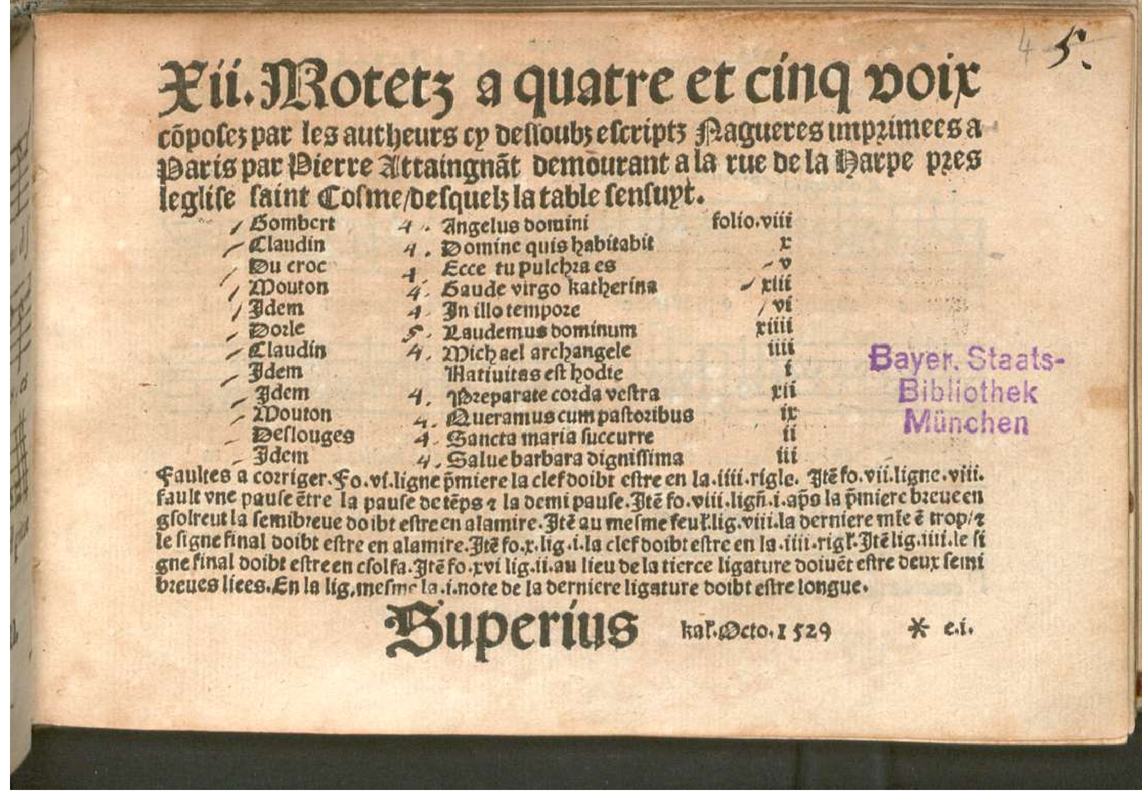 4 5.
Xii. Motetz a quatre et cinq voix
cõposez par les autheurs cy dessoubz escriptz Nagueres imprimees a
Paris par Pierre Attaingnãt demourant a la rue de la Harpe pres
leglise saint Cosme/desquelz la table sensuyt.
Gombert 4. Angelus domini folio.viii
Claudin 4. Domine quis habitabit x
Du croc 4. Ecce tu pulchra es v
Mouton 4. Gaude virgo katherina xiii
Idem 4. In illo tempore vi
Dorle 5. Laudemus dominum xiiii
Claudin 4. Michael archangele iiii
Idem Nativitas est hodie i
Idem 4. Preparate corda vestra xii
Mouton 4. Queramus cum pastoribus ix
Deslouges 4. Sancta maria succurre ii
Idem 4. Salue barbara dignissima iii
Bayer. Staats-
Bibliothek
München
Faultes a corriger. Fo.vi.ligne p̃miere la clef doibt estre en la.iiii.rigle. Itẽ fo.vii.ligne.viii.
fault vne pause ẽtre la pause de tẽps ⁊ la demi pause. Itẽ fo.viii.lign̄.i.ap̃s la p̃miere breue en
gsolreut la semibreue doibt estre en alamire. Itẽ au mesme feul̵.lig.viii.la derniere mĩe ẽ trop/⁊
le signe final doibt estre en alamire. Itẽ fo.x.lig.i.la clef doibt estre en la.iiii.rigl̵. Itẽ lig.iiii.le si
gne final doibt estre en csolfa. Itẽ fo.xvi lig.ii.au lieu de la tierce ligature doiuẽt estre deux semi
breues liees. En la lig.mesme la.i.note de la derniere ligature doibt estre longue.
Superius kal̵.Octo.1529 * e.i.